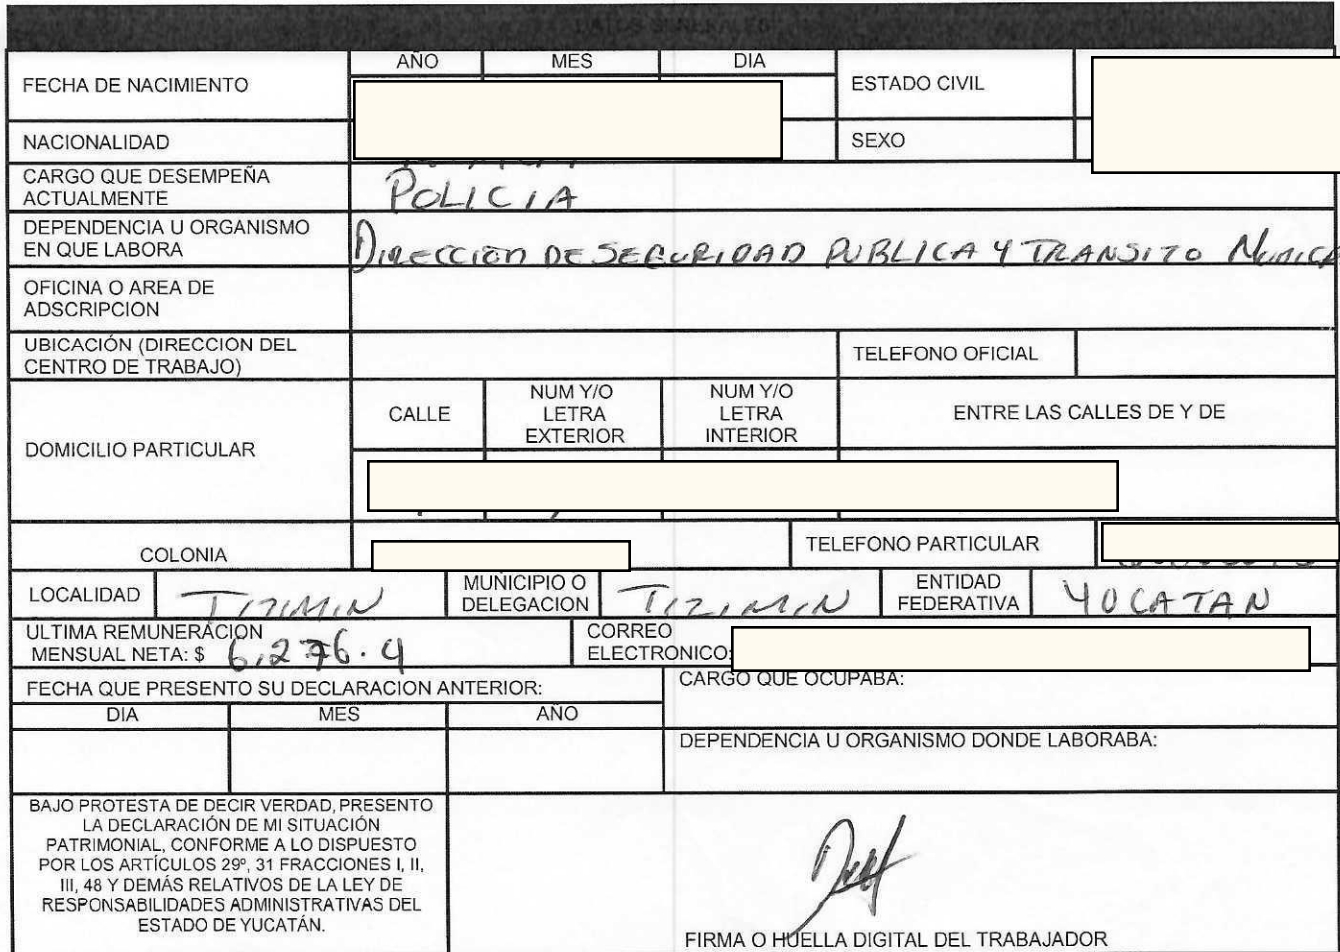 DATOS GENERALES
FECHA DE NACIMIENTO
AÑO MES DIA
ESTADO CIVIL
NACIONALIDAD
SEXO
CARGO QUE DESEMPEÑA
ACTUALMENTE
POLICIA
DEPENDENCIA U ORGANISMO
EN QUE LABORA
DIRECCION DE SEGURIDAD PUBLICA Y TRANSITO
OFICINA O AREA DE
ADSCRIPCION
UBICACIÓN (DIRECCION DEL
CENTRO DE TRABAJO)
TELEFONO OFICIAL
DOMICILIO PARTICULAR
CALLE
NUM Y/O
LETRA
EXTERIOR
NUM Y/O
LETRA
INTERIOR
ENTRE LAS CALLES DE Y DE
COLONIA
TELEFONO PARTICULAR
LOCALIDAD
TIZIMIN
MUNICIPIO O
DELEGACION
TIZIMIN
ENTIDAD
FEDERATIVA
YUCATAN
ULTIMA REMUNERACION
MENSUAL NETA: $ 6,276.4
CORREO
ELECTRONICO:
FECHA QUE PRESENTO SU DECLARACION ANTERIOR:
CARGO QUE OCUPABA:
DIA MES AÑO
DEPENDENCIA U ORGANISMO DONDE LABORABA:
BAJO PROTESTA DE DECIR VERDAD, PRESENTO
LA DECLARACIÓN DE MI SITUACIÓN
PATRIMONIAL, CONFORME A LO DISPUESTO
POR LOS ARTÍCULOS 29º, 31 FRACCIONES I, II,
III, 48 Y DEMÁS RELATIVOS DE LA LEY DE
RESPONSABILIDADES ADMINISTRATIVAS DEL
ESTADO DE YUCATÁN.
FIRMA O HUELLA DIGITAL DEL TRABAJADOR